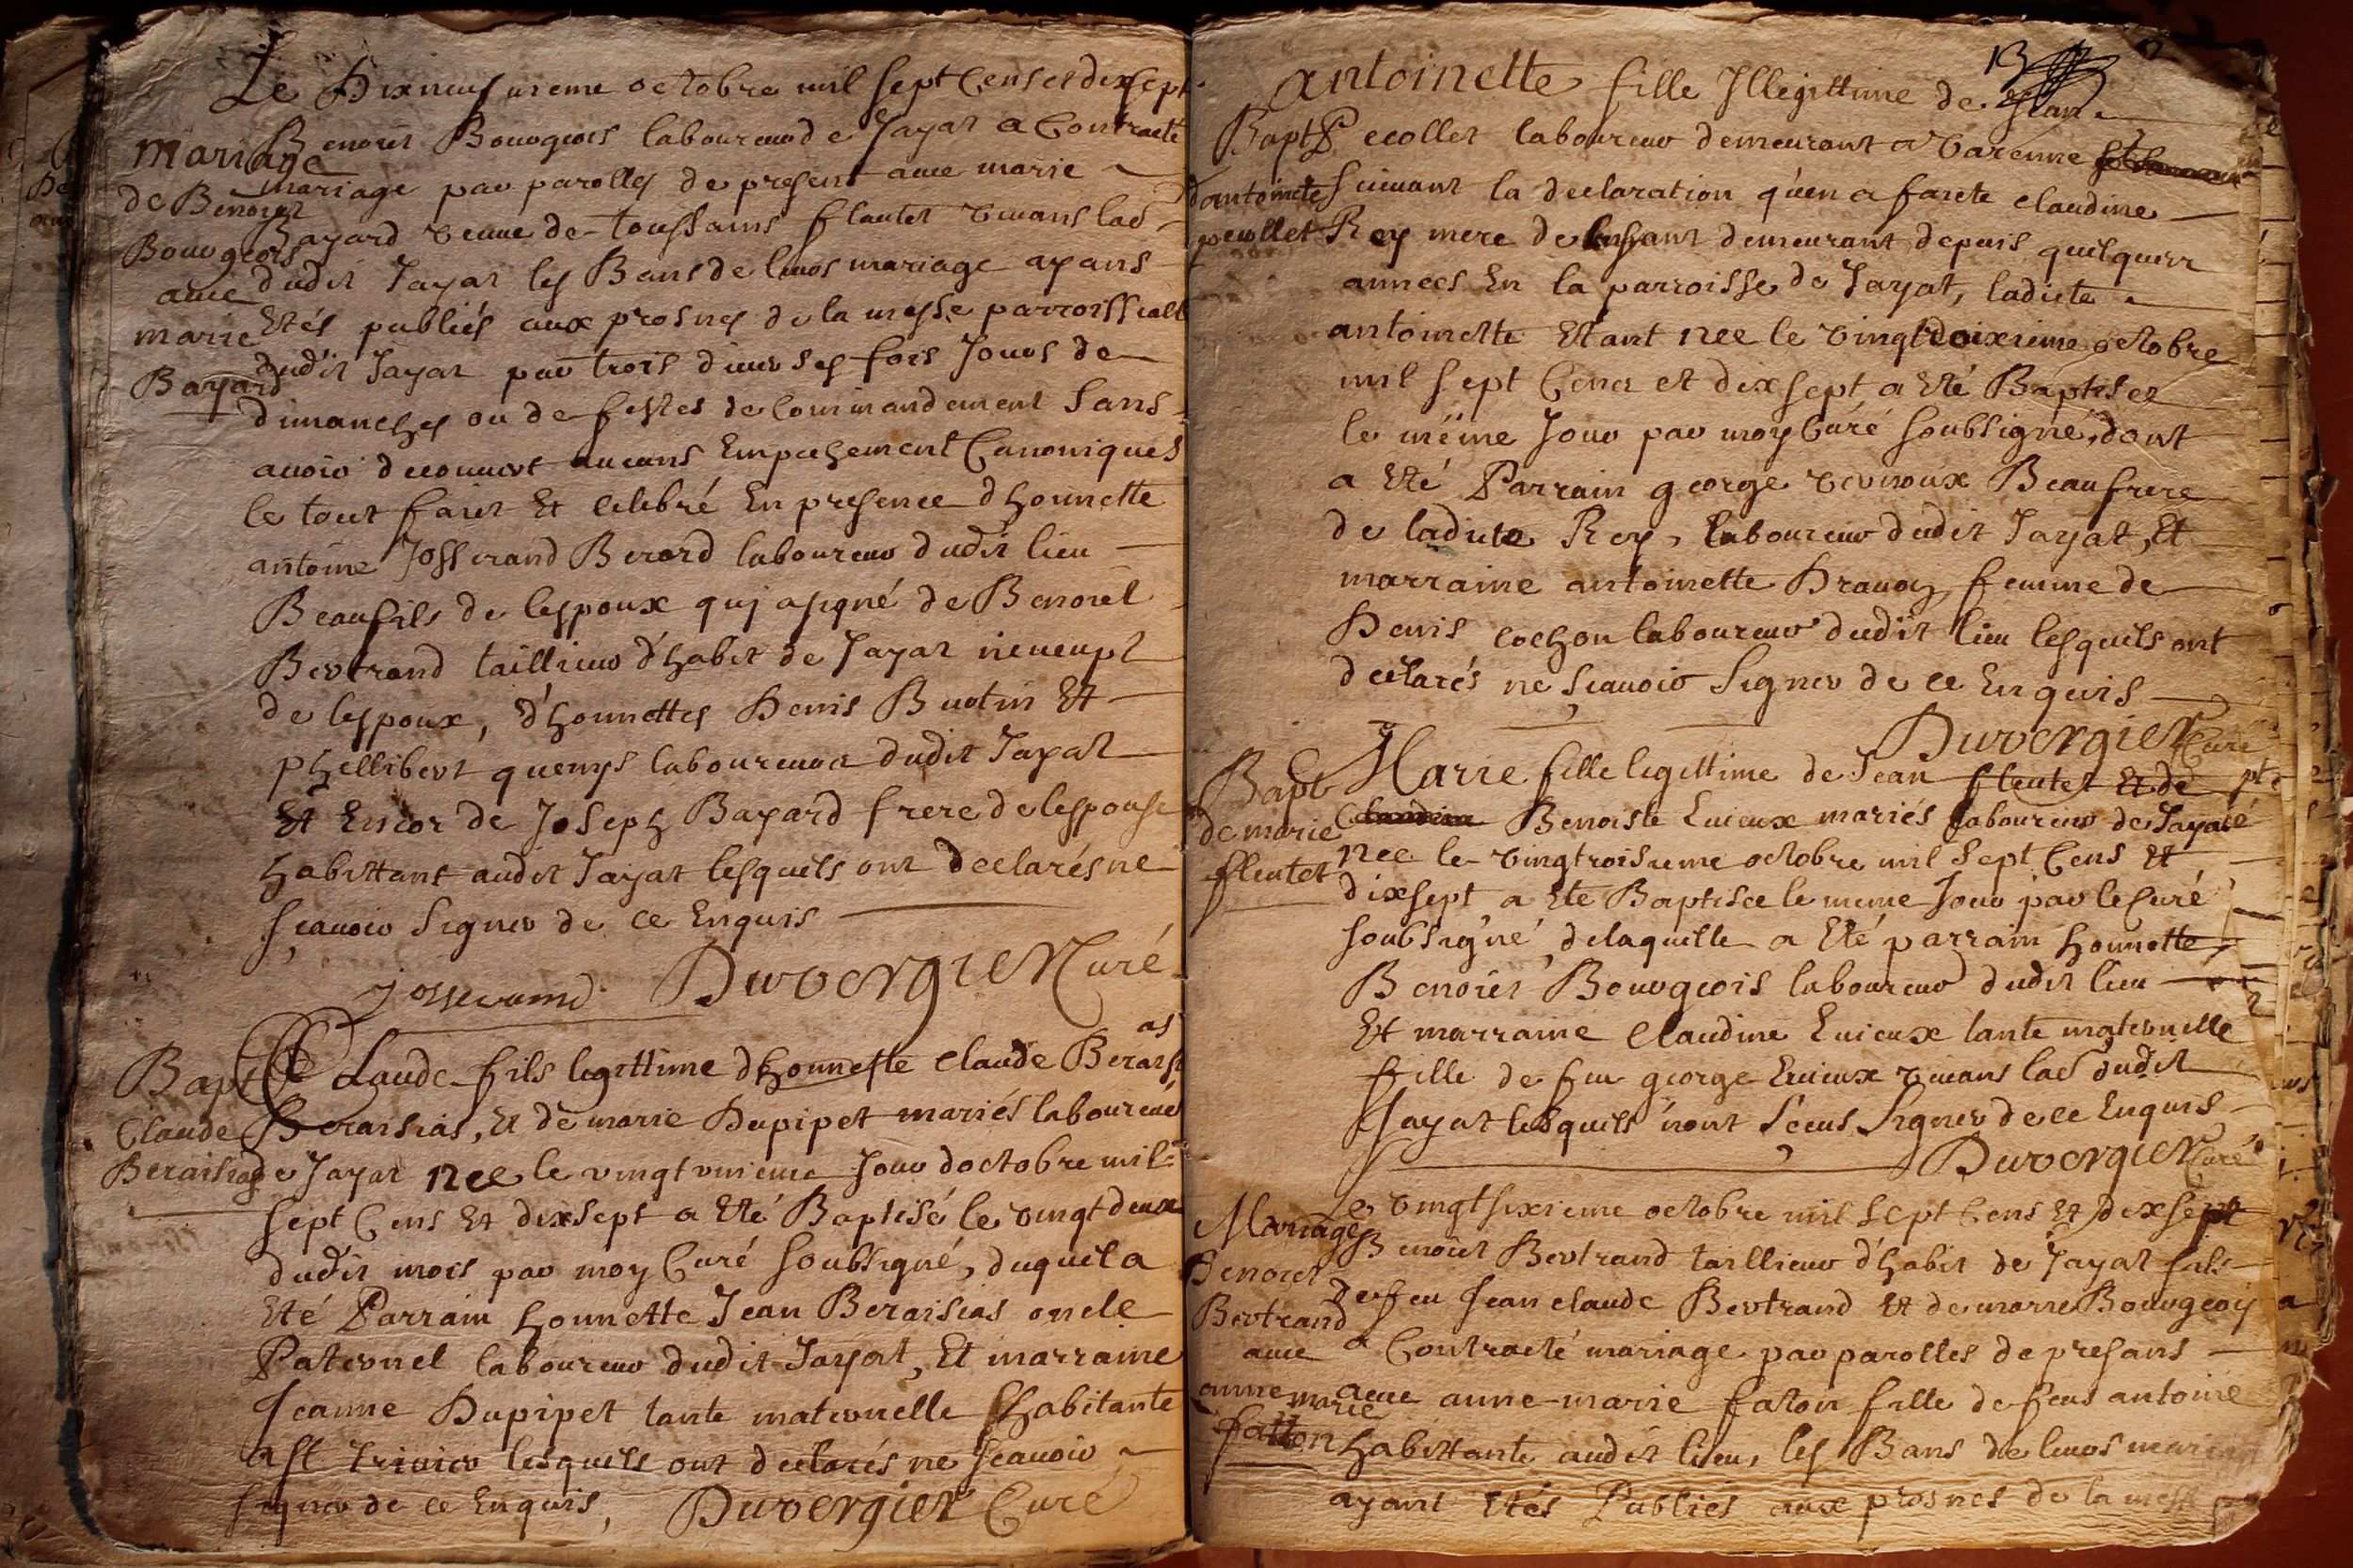 Le Dixneufvieme octobre mil sept Cens et dixsept
Benoist Bouvgeois laboureur de Jayat a Contracté
mariage
mariage par parolles de present avec marie
de Benoist
Bayard veuve de toussains fleutet vivans lad
Bouvgeois
dudit Jayat les Bans de leurs mariage ayans
avec
Etés publiés aux prosnes de la messe parroissialle
marie
dudit Jayat par trois diverses fois Jours de
Bayard
dimanches ou de festes de Commandement Sans
avoir decouvert aucuns Empechement Canoniques
le tout fait Et celebré En presence d'honnette
antoine Josserand Berord laboureur dudit lieu
Beaufils de lespoux qui a signé de Benoit
Bertrand taillieur d'habit de Jayat
de lespoux, d'honnettes Denis Buotin Et
phellibert quenys laboureurs dudit Jayat
Et Encor de Joseph Bayard frere de lespouse
habittans audit Jayat lesquels ont declarés ne
sçavoir Signer de ce Enquis
Josserand Duvergier Curé
as
Bapt Claude fils legittime d'honneste Claude Berais
Claude Beraisias, et de marie Dupipet mariés laboureur
Beraisias de Jayat née le vingtunieme Jour doctobre mil
sept Cens Et dixsept a Eté Baptisé le vingtdeux
dudit mois par moy Curé soubsigné, duquel a
Eté Parrain honnette Jean Beraisias oncle
Paternel laboureur dudit Jayat, Et marraine
Jeanne Dupipet tante maternelle habitante
a St trivier lesquels ont declarés ne sçavoir
signer de ce Enquis, Duvergier Curé
13
antoinette fille Illegittime de Jean
Bapt Pecollet laboureur demeurant a varenne
dantoinette suivant la declaration qu'en a faicte claudine
pecollet Rey mere de lenfant demeurant depuis quelques
années En la parroisse de Jayat, ladicte
antoinette Etant née le vingtdeixieme octobre
mil sept Cens et dixsept a Eté Baptisee
le même Jour par moy Curé soubsigné, dont
a Eté Parrain george vernoux Beaufrere
de ladicte Rey, laboureur dudit Jayat, Et
marraine antoinette Dravoy femme de
Denis cochon laboureur dudit lieu lesquels ont
declarés ne sçavoir Signer de ce Enquis
Duvergier Curé
Bapt Marie fille legittime de Jean fleutet Et de
de marie Benoiste Luieux mariés laboureur de Jayat
fleutet née le vingtroisieme octobre mil sept Cens Et
dixsept a Eté Baptisée le meme Jour par le Curé
soubsigné, delaquelle a Eté parrain honnette
Benoist Bouvgeois laboureur dudit lieu
Et marraine Claudine Luieux tante maternelle
fille de feu george Luieux vivans lad dudit
Jayat lesquels n'ont sceus Signer de ce Enquis
Duvergier Curé
Le vingtsixieme octobre mil sept Cens Et dixsept
Mariage
Benoist Bertrand taillieur d'habit de Jayat fils
Benoist
de feu Jean claude Bertrand Et de marie Bouvgeois
Bertrand
a Contracté mariage par parolles de presans
avec
anne marie
avec anne-marie faton fille de feus antoine
fatton habittante audit lieu, les Bans de leurs mariage
ayant Etés Publiés aux prosnes de la messe